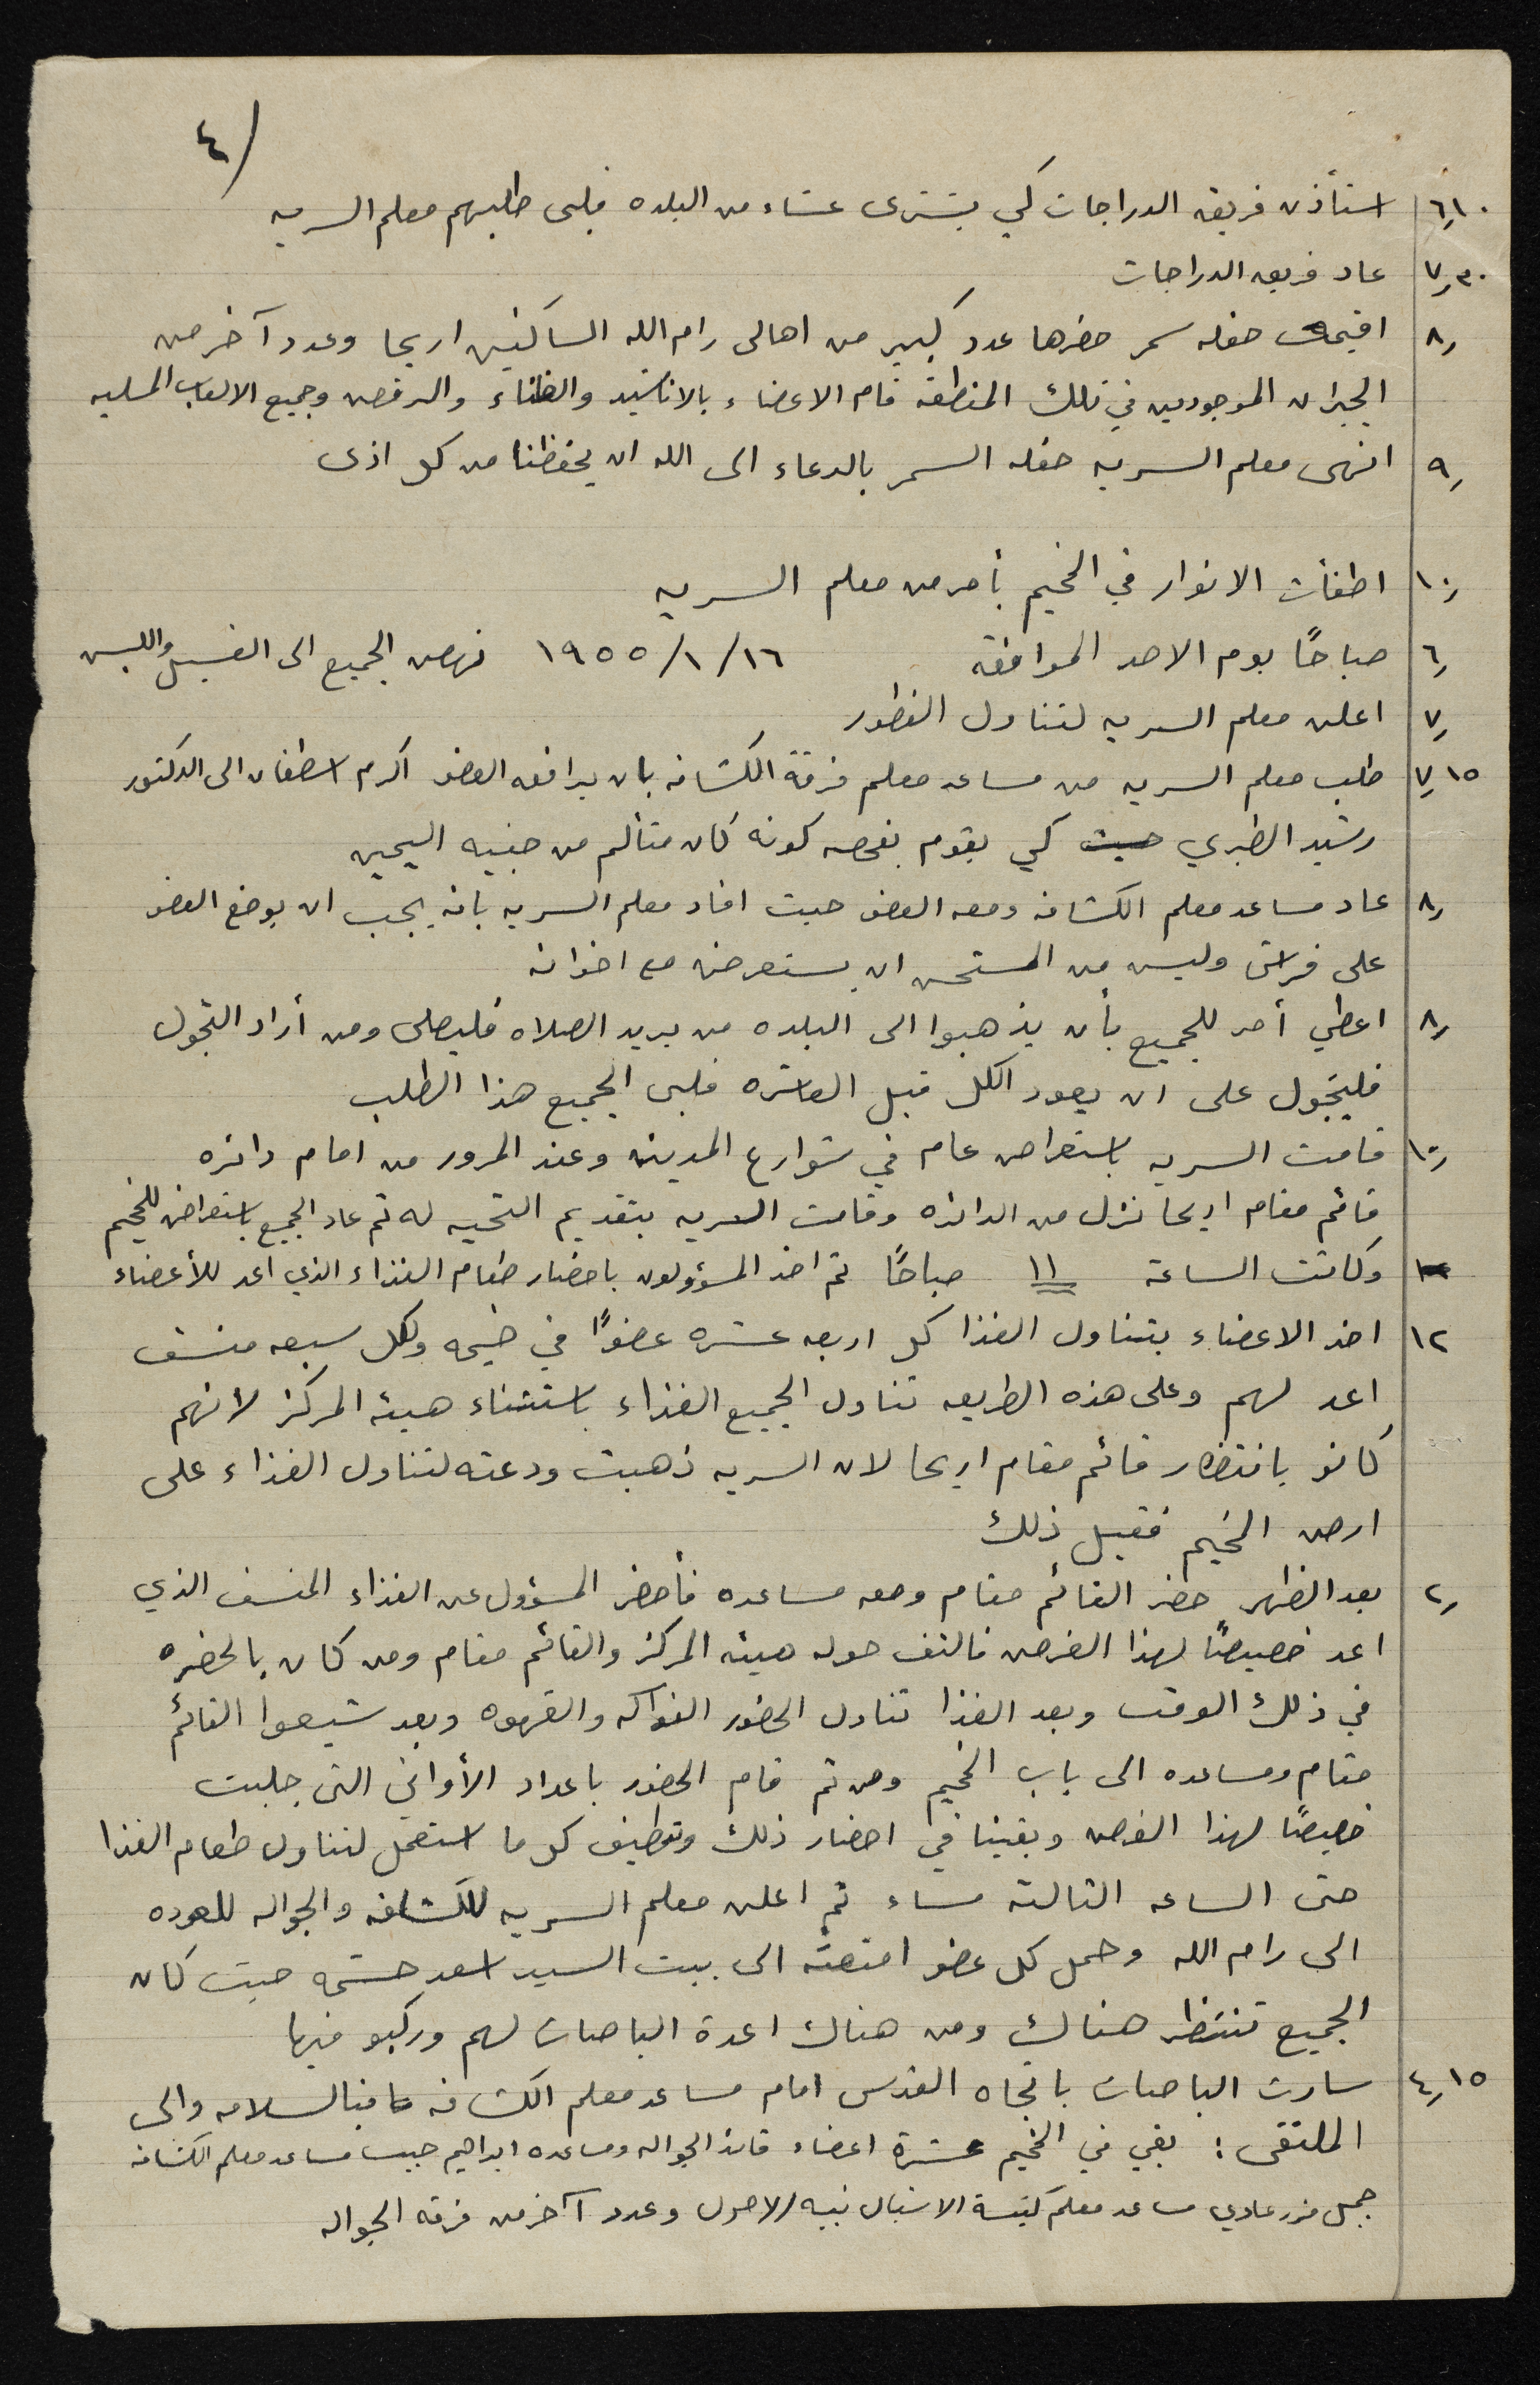 ٤/
٦,١٠ استأذن فريق الدراجات كي يشترى عشاء من البلده فلبى طلبهم معلم السريه
٧,٣٠ عاد فريق الدراجات
٨, اقيمت حفله سمر حضرها عدد كبير من اهالي رام الله الساكنين اريحا وعدد آخر من
الجيران الموجودين في تلك المنطقه قام الاعضاء بالاناشيد والغناء والرقص وجميع الالعاب المسليه
٩, انهى معلم السريه حفله السمر بالدعاء الى الله ان يحفظنا من كل اذى
١٠, اطفأت الانوار في المخيم بأمر من معلم السريه
٦, صباحًا يوم الاحد الموافق ١٦/١/١٩٥٥ نهض الجميع الى الغسيل واللبس
٧, اعلن معلم السريه لتناول الفطور
٧,١٥ طلب معلم السريه من مساعد معلم فرقة الكشافه بان يرافق العضو اكرم اسطفان الى الدكتور
رشيد الطبري حيث كي يقوم بفحصه كونه كان متألم من جنبيه اليمين
٨, عاد مساعد معلم الكشافه ومعه العضو حيث افاد معلم السريه بانه يجب ان يوضع العضو
على فراش وليس من المستحسن ان يستعرض مع اخوانه
٨, اعطي أمر للجميع بأن يذهبوا الى البلده من يريد الصلاه فليصلى ومن أراد التجول
فليتجول على ان يعود الكل قبل العاشره فلبى الجميع هذا الطلب
١٠, قامت السريه باستعراض عام في شوارع المدينه وعند المرور من امام دائره
قائم مقام اريحا نزل من الدائره وقامت السريه بتقديم التحيه له ثم عاد الجميع باستعراض للمخيم
وكانت الساعة ١١ صباحًا ثم اخذ المسؤولون باحضار طعام الغذاء الذي اعد للأعضاء
١٢ اخذ الاعضاء بتناول الغذا كل اربعه عشره عضوًا في خيمه ولكل سبعه منسف
اعد لهم وعلى هذه الطريقه تناول الجميع الغذاء باستثناء هيئه المركز لانهم
كانو بانتظار قائم مقام اريحا لان السريه ذهبت ودعته لتناول الغذاء على
ارض المخيم فقبل ذلك
٢, بعد الظهر حضر القائم مقام ومعه مساعده فأحضر المسؤول عن الغذاء المنسف الذي
اعد خصيصًا لهذا الغرض فالتف حوله هيئه المركز والقائم مقام ومن كان بالحضره
في ذلك الوقت وبعد الغذا تناول الحضور الفواكه والقهوه وبعد شيعوا القائم
مقام ومساعده الى باب المخيم ومن ثم قام الحضور باعداد الأواني التي جلبت
خصيصًا لهذا الغرض وبقينا في احضار ذلك وتنظيف كل ما استعمل لتناول طعام الغذا
حتى الساعه الثالثة مساء ثم اعلن معلم السريه للكشافه والجواله للعوده
الى رام الله وحمل كل عضو امتعته الى بيت السيد اسعد حشمه حيث كان
الجميع تنتظر هناك ومن هناك اعدة الباصات لهم وركبو فيها
٤,١٥ سارت الباصات باتجاه القدس امام مساعد معلم الكشافه هاتفا بالسلامه والى
الملتقى : بقي في المخيم عشرة اعضاء قائد الجواله ومساعده ابراهيم حبيب مساعد معلم الكشافه
جميل عادي مساعد معلم الاشبال نبيه الاحول وعدد آخر من فرقه الجواله